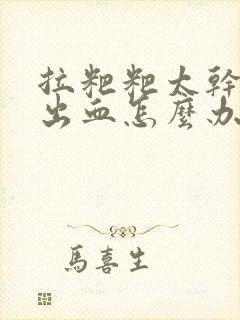 拉粑粑太幹
出血怎麼办
馬喜生